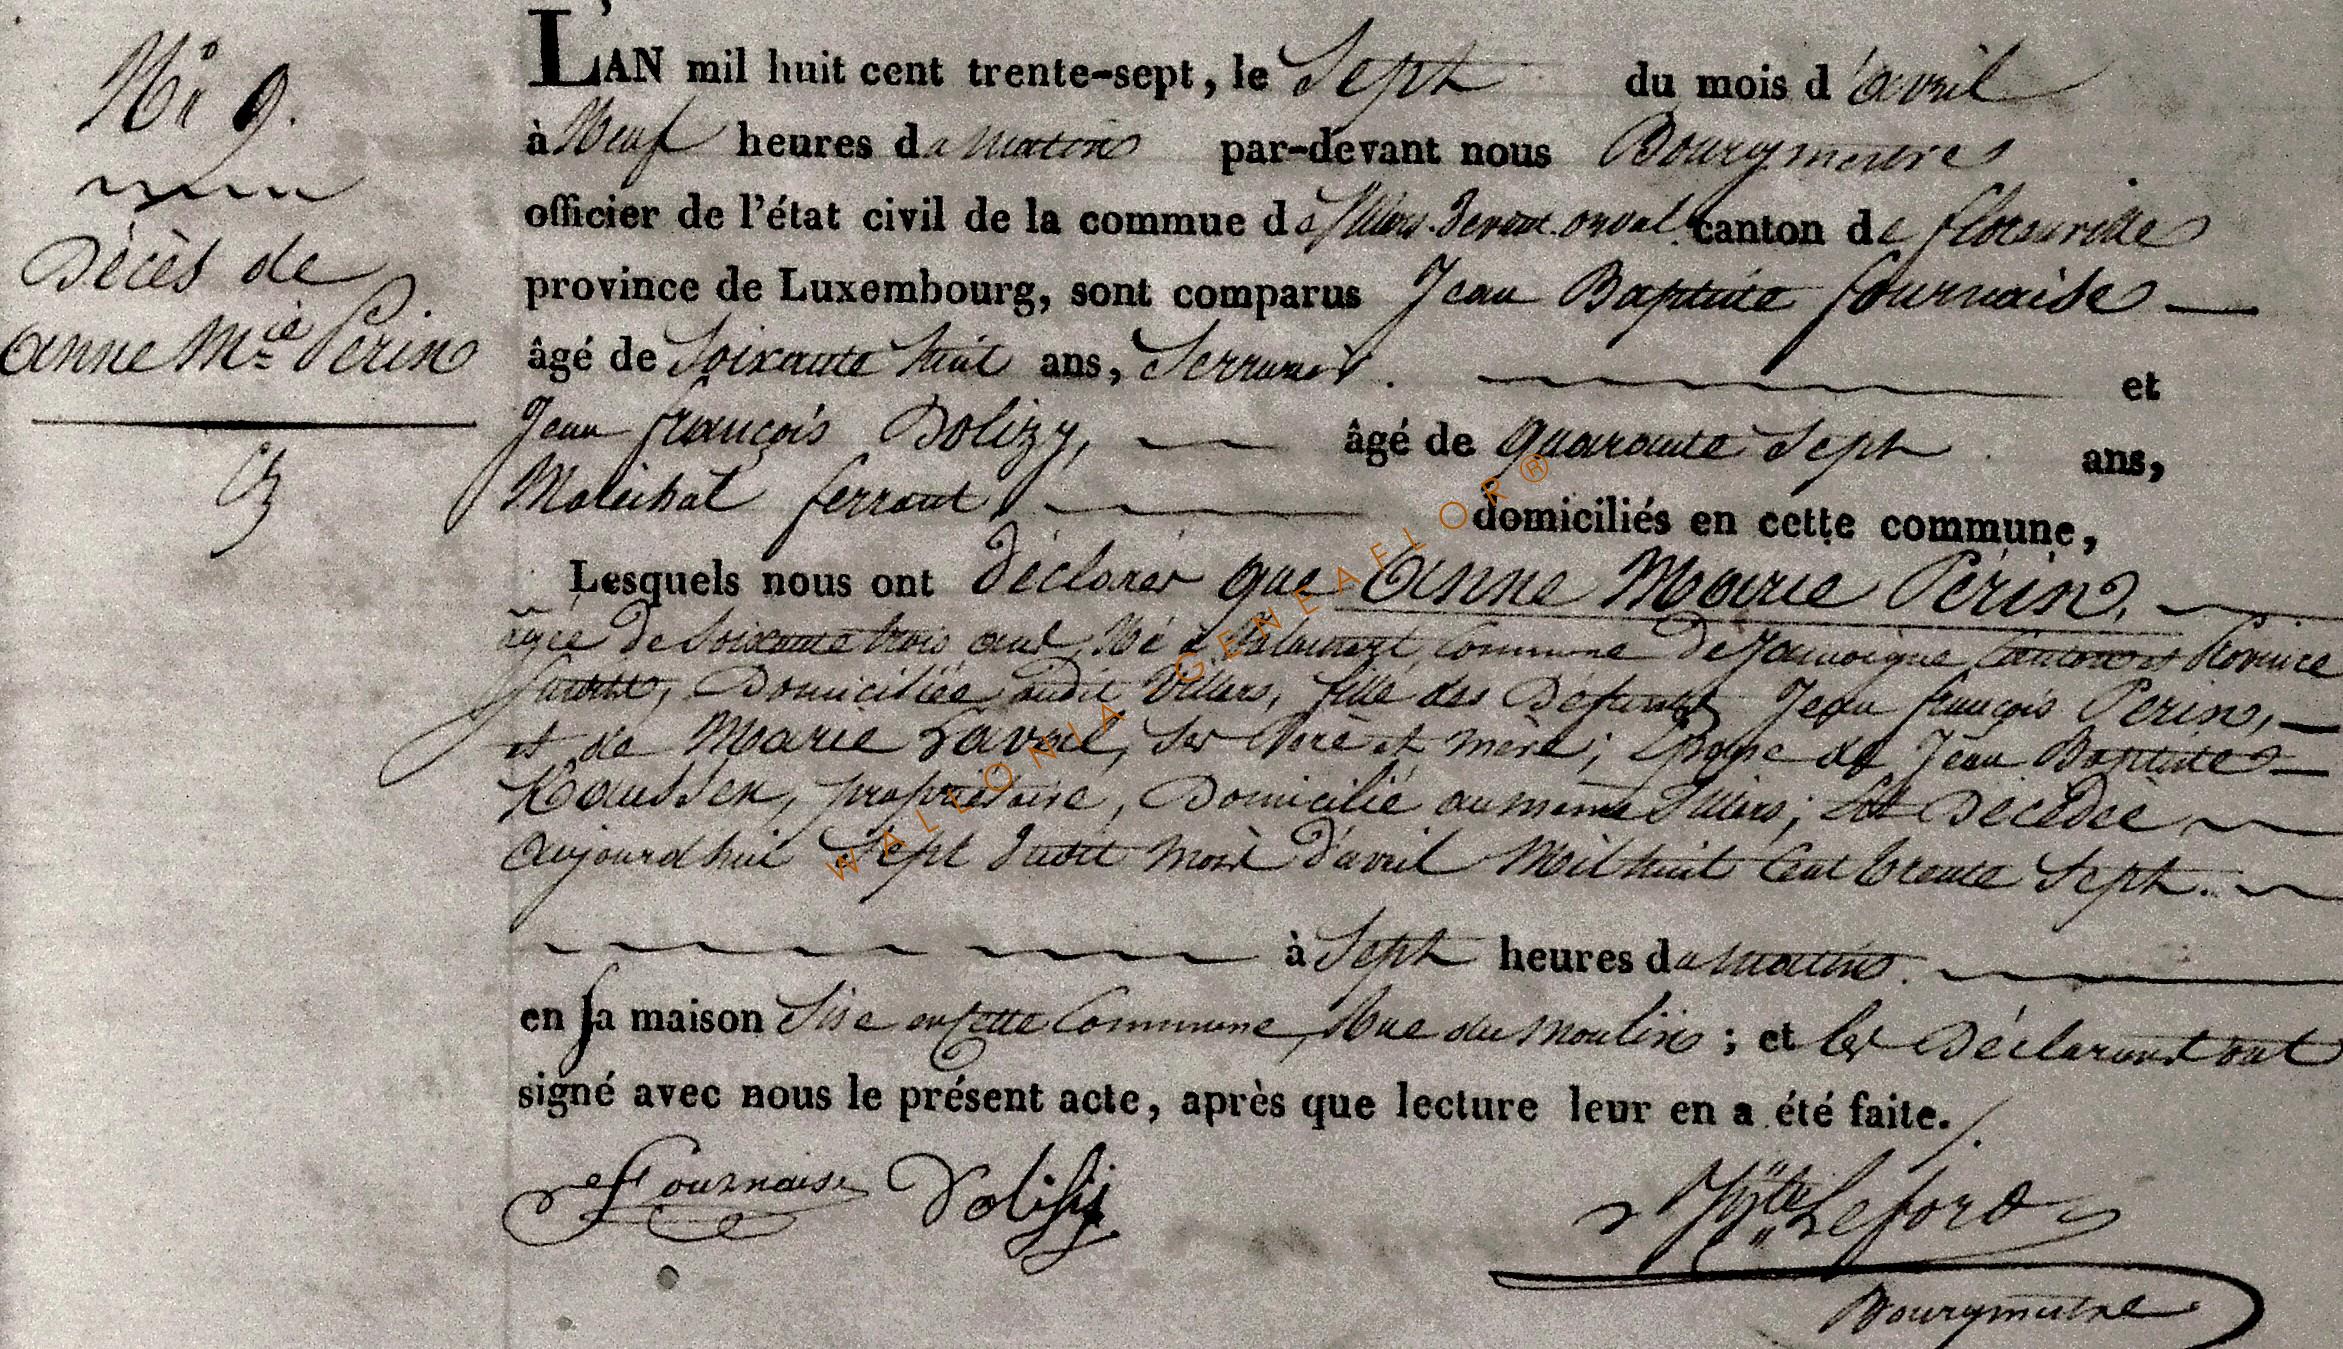 N° 9.
Décès de
anne Mie Perin
L'AN mil huit cent trente-sept, le Sept du mois d'avril
à Neuf heures du matin par-devant nous Bourgmestre
officier de l'état civil de la commue de Villers-devant-orval canton de florenville
province de Luxembourg, sont comparus Jean Baptiste fournaise
âgé de Soixante huit ans, Serrurier. et
Jean françois Dolizy, âgé de quarante Sept ans,
Maréchal ferrant, domiciliés en cette commune,
Lesquels nous ont déclarés que Anne Marie Perin,
agée de Soixante trois ans, Né à commune de Jamoigne, Canton et Province
Susdite, Domiciliée audit Villers, fille des Défunts Jean françois Perin,
et de Marie ses Père et mère; Epouse de Jean Baptiste
propriétaire, Domicilié au même Villers; Est Décédée
aujourd'hui Sept dudit mois d'avril Mil huit Cent trente Sept.
à Sept heures du matin.
en sa maison Sise en Cette Commune, Rue du Moulin ; et les Déclarants ont
signé avec nous le présent acte, après que lecture leur en a été faite.
Fournaise Dolisy Hyte Leford
Bourgmestre
WALLONIA GENEAFLOR®